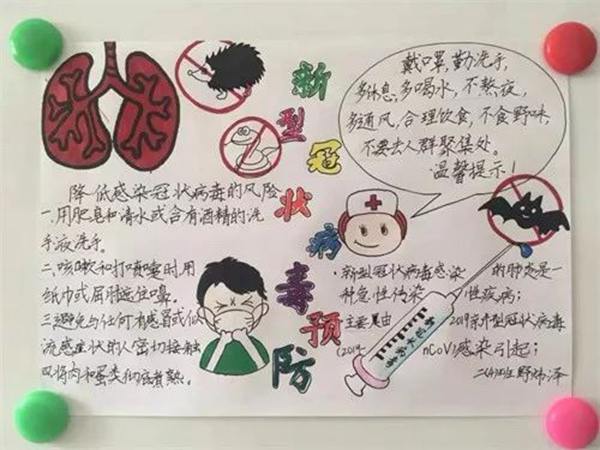 新型冠状病毒预防
戴口罩,勤洗手,
多休息,多喝水,不熬夜,
多通风,合理饮食,不食野味
不要去人群聚集处。
温馨提示!
降低感染冠状病毒的风险
一.用肥皂和清水或含有酒精的洗
手液洗手。
二.咳嗽和打喷嚏时用
纸巾或屈肘遮住口鼻。
三避免与任何有感冒或似
流感症状的人密切接触
四将肉和蛋类彻底煮熟。
·新型冠状病毒感染 的肺炎是一
种急性传染 性疾病;
主要是由 2019新型冠状病毒
(2019- nCoV)感染引起;
二(4)班